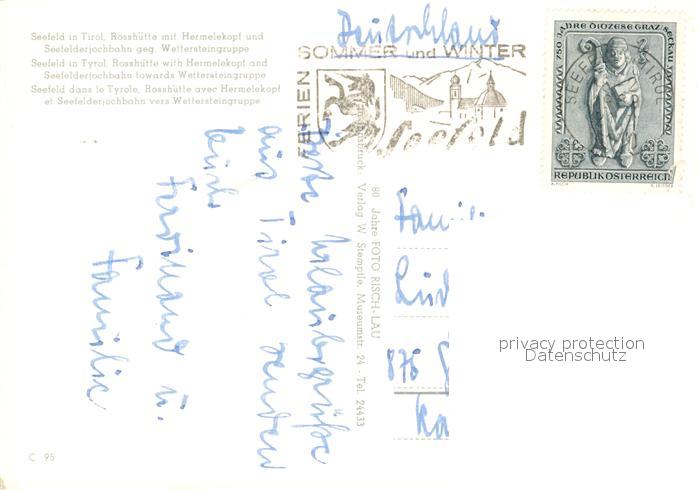 Seefeld in Tirol, Rosshütte mit Hermelekopf und
Seefelderjochbahn geg. Wettersteingruppe
Seefeld in Tyrol, Rosshütte with Hermelekopf and
Seefelderjochbahn towards Wettersteingruppe
Seefeld dans le Tyrole, Rosshütte avec Hermelekopf
et Seefelderjochbahn vers Wettersteingruppe
Deutschland
SOMMER und WINTER
FERIEN
Seefeld
750 JAHRE DIÖZESE GRAZ/Seckau
SEEFELD TIROL
REPUBLIK ÖSTERREICH
Urlaubsgrüße
aus Tirol senden
Euch
Ferdinand u.
Familie
80 Jahre FOTO RISCH-LAU
Innsbruck: Verlag W. Stempfle, Museumstr. 24 - Tel. 24433
Fam
875
privacy protection
Datenschutz
C 95